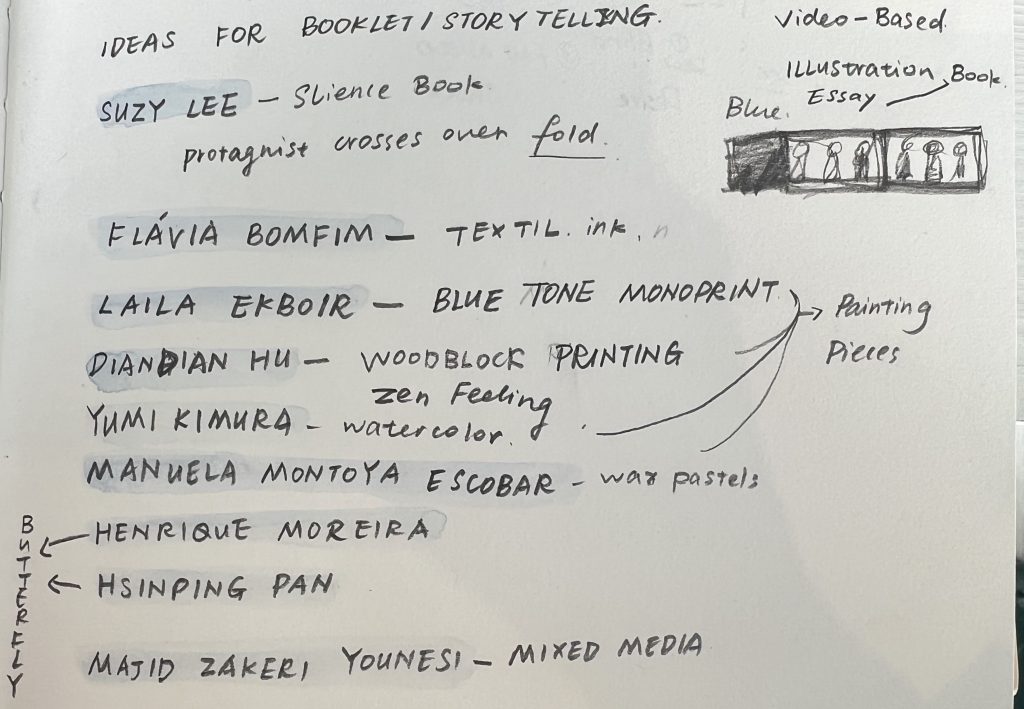 IDEAS FOR BOOKLET/STORYTELLING.
SUZY LEE – Slience Book
protagnist crosses over fold.
Video-Based
ILLUSTRATION
Essay
Book.
Blue.
FLÁVIA BOMFIM – TEXTIL. ink.
LAILA EKBOIR – BLUE TONE MONOPRINT.
Painting
Pieces
DIANDIAN HU – WOODBLOCK PRINTING
zen Feeling
YUMI KIMURA – watercolor.
MANUELA MONTOYA ESCOBAR – wax pastels
HENRIQUE MOREIRA
HSINPING PAN
BUTTERFLY
MAJID ZAKERI YOUNESI – MIXED MEDIA